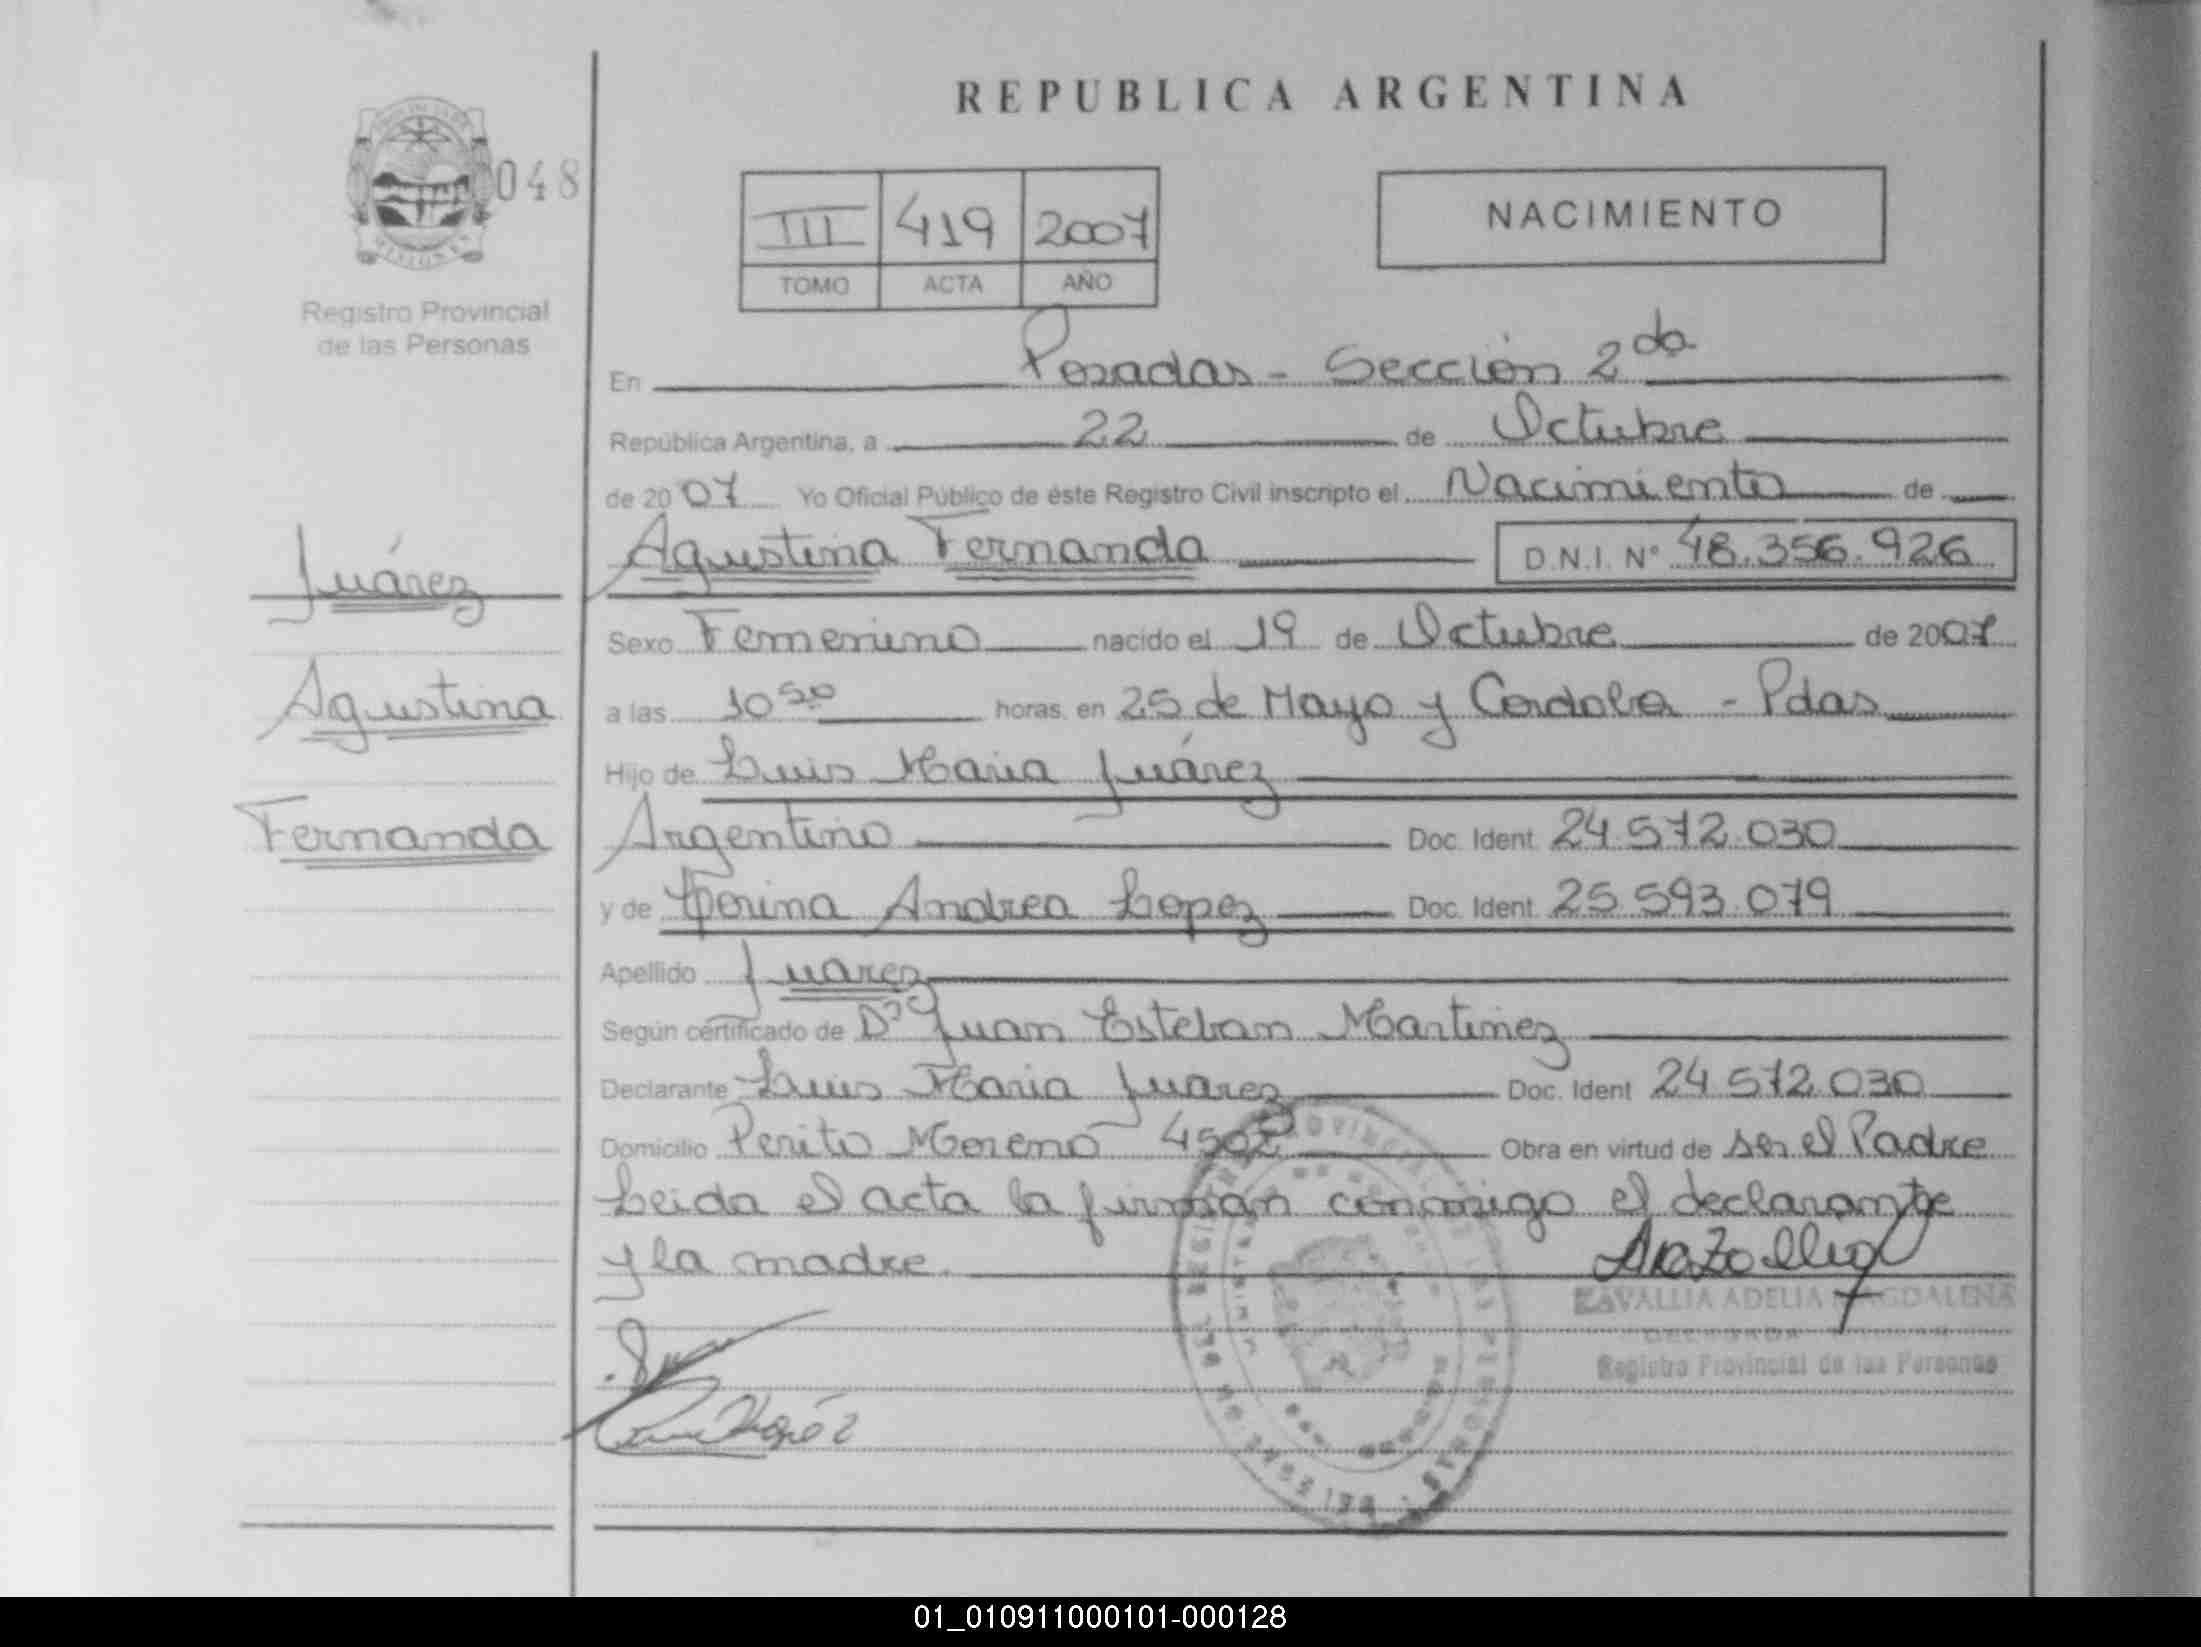 REPUBLICA ARGENTINA
048
MISIONES
Registro Provincial
de las Personas
III 419 2007
TOMO ACTA AÑO
NACIMIENTO
En Posadas - Sección 2da
República Argentina, a 22 de Octubre
de 2007 Yo Oficial Público de éste Registro Civil inscripto el Nacimiento de
Agustina Fernanda D.N.I. Nº 48.356.926
Juárez
Agustina
Fernanda
Sexo Femenino nacido el 19 de Octubre de 2007
a las 10 50 horas en 25 de Mayo y Cordoba - Pdas
Hijo de Luis Maria Juárez
Argentino Doc. Ident 24.572.030
y de Andrea Lopez Doc. Ident 25.593.079
Apellido Juarez
Según certificado de Dr Juan Esteban Martinez
Declarante Luis Maria Juarez Doc. Ident 24.572.030
Domicilio Perito Moreno Obra en virtud de ser el Padre
Leida el acta la firman conmigo el declarante
y la madre.
ZAVALLIA ADELIA MAGDALENA
Registro Provincial de las Personas
01_010911000101-000128